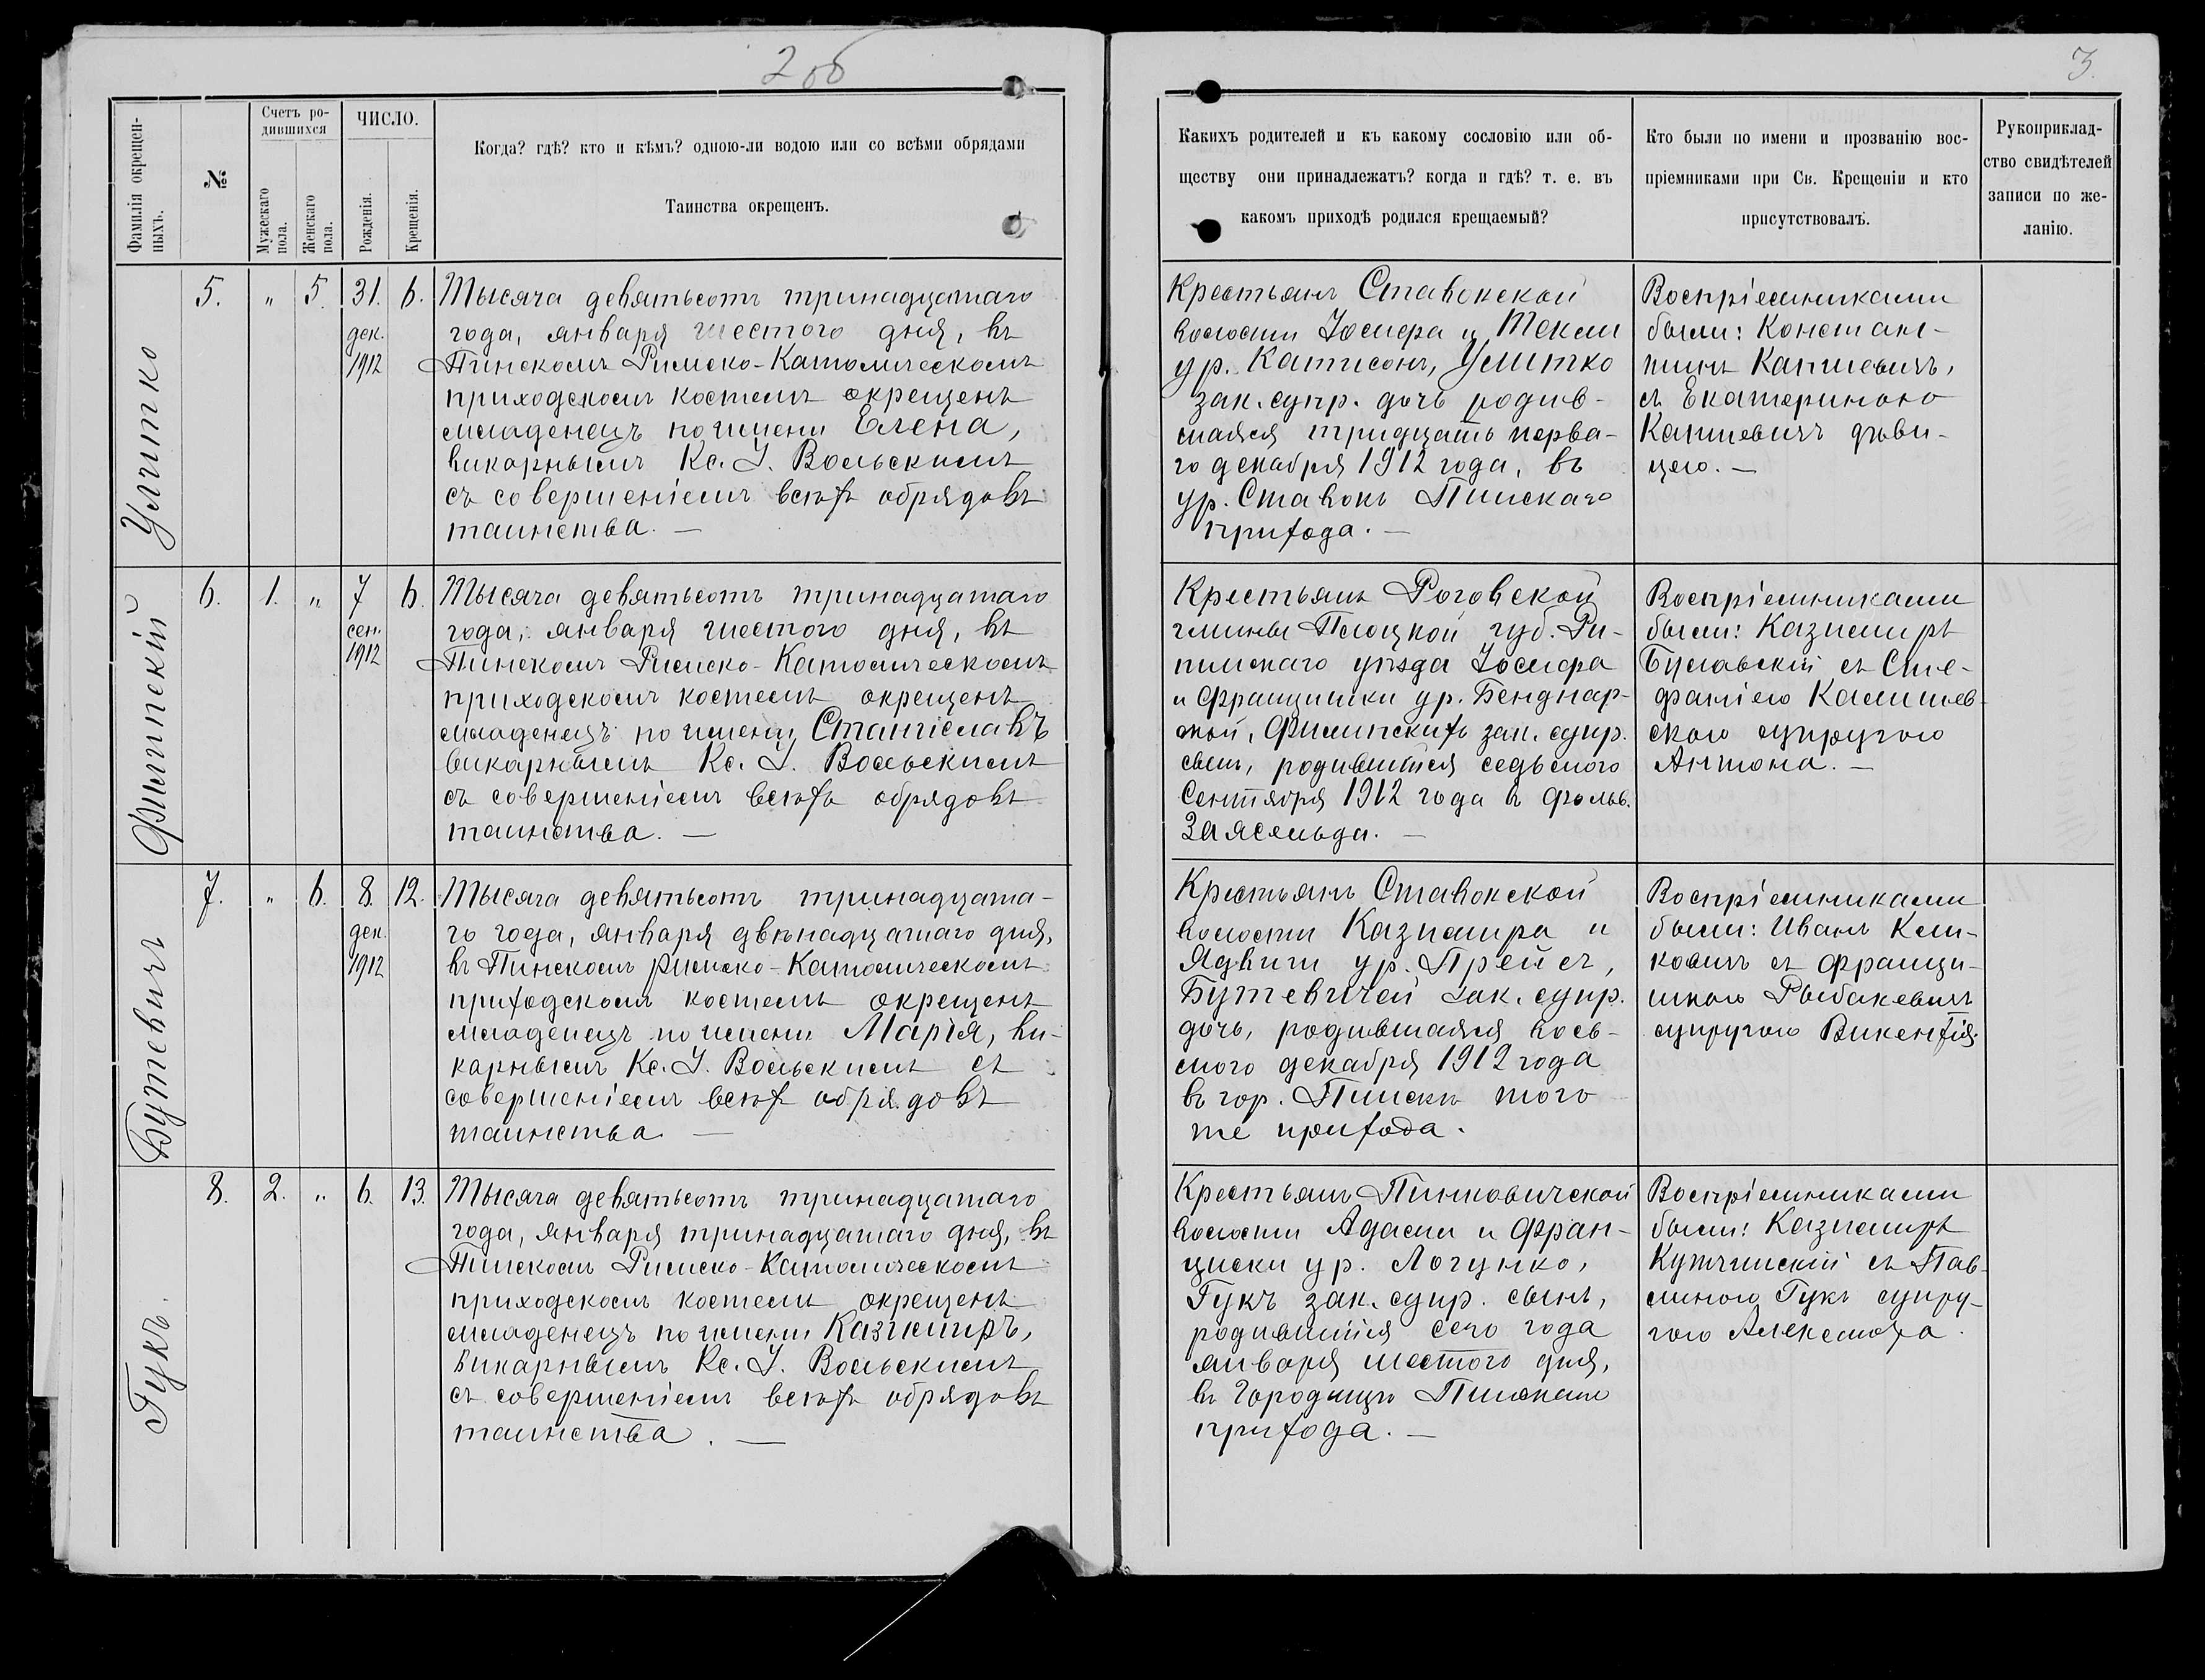 2 об
3.
Фамилія окрещен-
ныхъ.
№
Счетъ ро-
дившихся
Мужескаго
пола.
Женскаго
пола.
ЧИСЛО.
Рожденія.
Крещенія.
Когда? гдѣ? кто и кѣмъ? одною-ли водою или со всѣми обрядами
Таинства окрещенъ.
Какихъ родителей и къ какому сословію или об-
ществу они принадлежатъ? когда и гдѣ? т. е. въ
какомъ приходѣ родился крещаемый?
Кто были по имени и прозванію вос-
пріемниками при Св. Крещеніи и кто
присутствовалъ.
Рукоприклад-
ство свидѣтелей
записи по же-
ланію.
Улитко
5. " 5. 31. 6.
дек.
1912
Тысяча девятьсотъ тринадцатаго
года, января шестого дня, въ
Пинскомъ Римско-Католическомъ
приходскомъ костелѣ окрещенъ
младенецъ по имени Елена,
викарнымъ Кс. І. Вольскимъ
съ совершеніемъ всѣхъ обрядовъ
таинства. —
Крестьянъ Ставокской
волости Іосифа и Текли
ур. Катисонъ, Улитко
зак. супр. дочь родив-
шаяся тридцать перва-
го декабря 1912 года, въ
ур. Ставокъ Пинскаго
прихода. —
Воспріемниками
были: Констан-
тинъ
съ Екатериною
дѣви-
цею. —
Филипскій
6. 1. " 7 6.
сен.
1912
Тысяча девятьсотъ тринадцатаго
года, января шестого дня, въ
Пинскомъ Римско-Католическомъ
приходскомъ костелѣ окрещенъ
младенецъ по имени Станіславъ
викарнымъ Кс. І. Вольскимъ
съ совершеніемъ всѣхъ обрядовъ
таинства. —
Крестьянъ Роговской
гмины Плоцкой губ. Ри-
пинскаго уѣзда Іосифа
и Францишки ур. Бенднар-
ской, Филипскихъ зак. супр.
сынъ, родившійся седьмого
Сентября 1912 года въ фольв.
Заясельда. —
Воспріемниками
были: Казимиръ
Буглавскій съ Сте-
фаніею
скою супругою
Антона. —
Бутевичъ
7. " 6. 8. 12.
дек.
1912
Тысяча девятьсотъ тринадцата-
го года, января двѣнадцатаго дня,
въ Пинскомъ римско-Католическомъ
приходскомъ костелѣ окрещенъ
младенецъ по имени Марія, ви-
карнымъ Кс. І. Вольскимъ съ
совершеніемъ всѣхъ обрядовъ
таинства. —
Крестьянъ Ставокской
волости Казимира и
Ядвиги ур. Прейсъ,
Бутевичей зак. супр.
дочь, родившаяся вось-
мого декабря 1912 года
въ гор. Пинскѣ того
же прихода.
Воспріемниками
были: Иванъ Клим-
ковичъ съ Франци-
шкою Рыбакевичъ
супругою Викентія.
Гукъ.
8. 2. " 6. 13.
Тысяча девятьсотъ тринадцатаго
года, января тринадцатаго дня, въ
Пинскомъ Римско-Католическомъ
приходскомъ костелѣ окрещенъ
младенецъ по имени Казимиръ,
викарнымъ Кс. І. Вольскимъ
съ совершеніемъ всѣхъ обрядовъ
таинства. —
Крестьянъ Пинковичской
волости Адама и Фран-
циски ур. Логунко,
Гукъ зак. супр. сынъ,
родившійся сего года
января шестого дня,
въ Городищѣ Пинскаго
прихода. —
Воспріемниками
были: Казимиръ
Кутчинскій съ Пав-
линою Гукъ супру-
гою Александра.